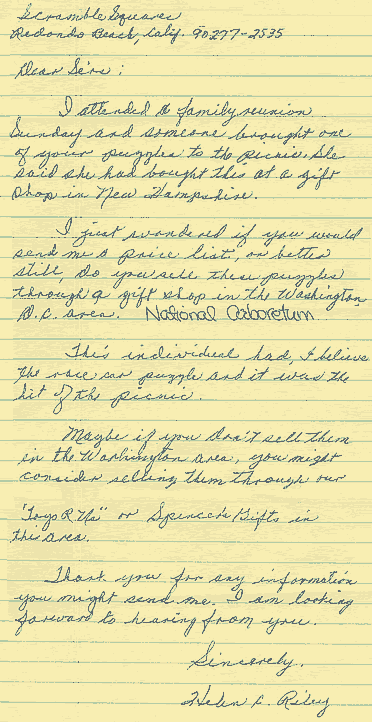 Scramble Squares
Redondo Beach, Calif. 90277-2535
Dear Sirs:
I attended a family reunion
Sunday and someone brought one
of your puzzles to the picnic. She
said she had bought this at a gift
shop in New Hampshire.
I just wondered if you would
send me a price list, or better
still, do you sell these puzzles
through a gift shop in the Washington
D.C. area. National Arboretum
This individual had, I believe
the race car puzzle and it was the
hit of the picnic.
Maybe if you don't sell them
in the Washington area, you might
consider selling them through our
"Toys R Us" or Spencer's Gifts in
this area.
Thank you for any information
you might send me. I am looking
forward to hearing from you.
Sincerely,
Helen C. Riley